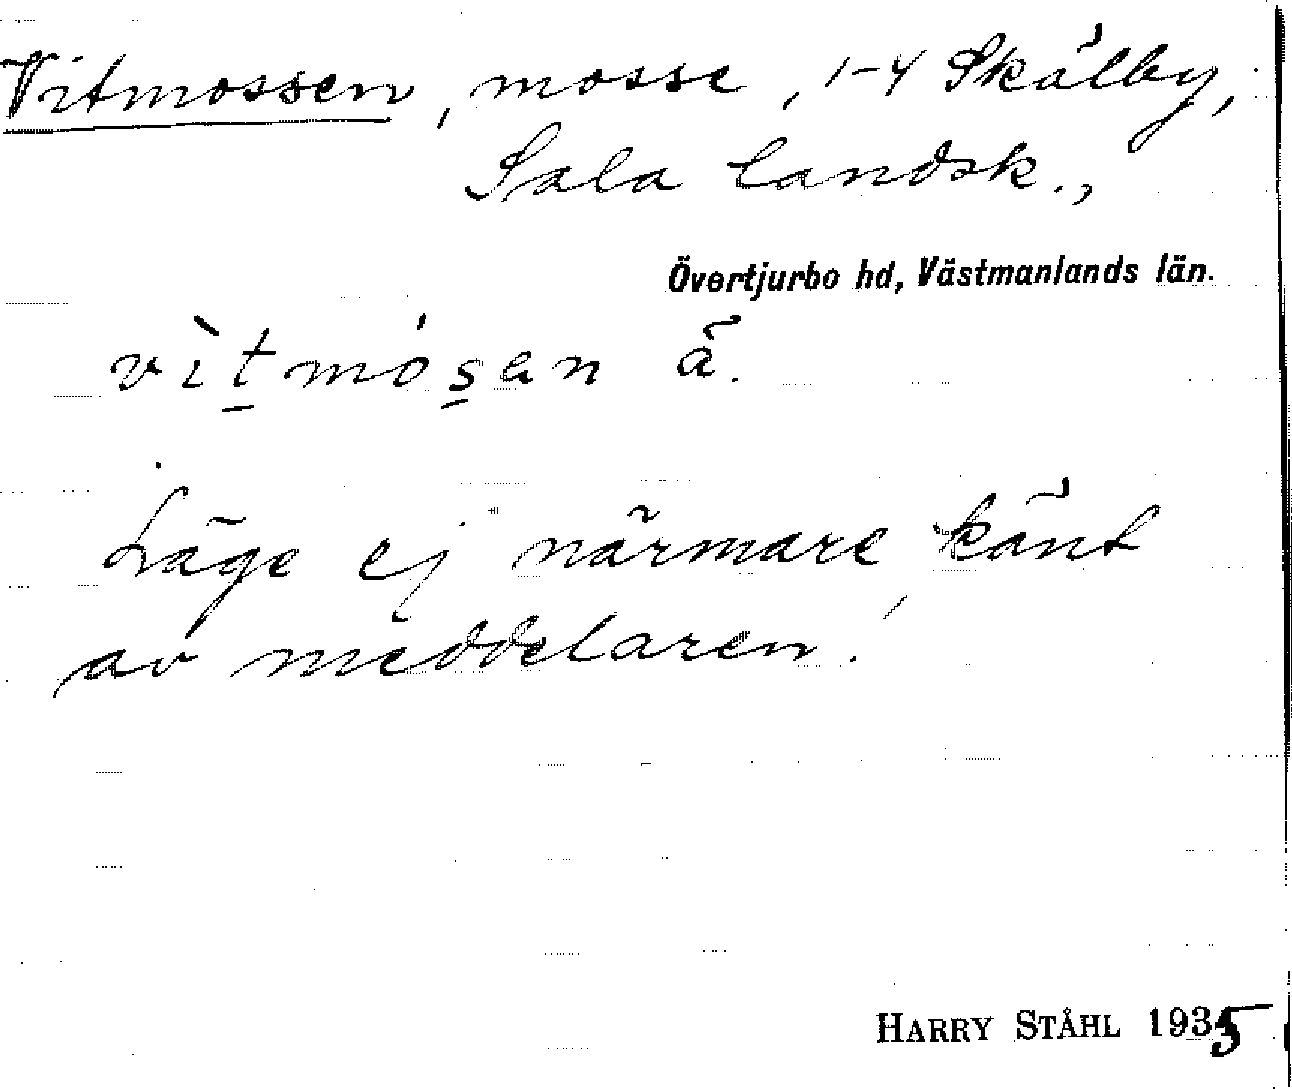 Vitmossen, mosse, 1-4 Skälby,
Sala landsk.,
Övertjurbo hd, Västmanlands län.
vìtmósen ã.
Läge ej närmare känt
av meddelaren.
HARRY STÅHL 1935